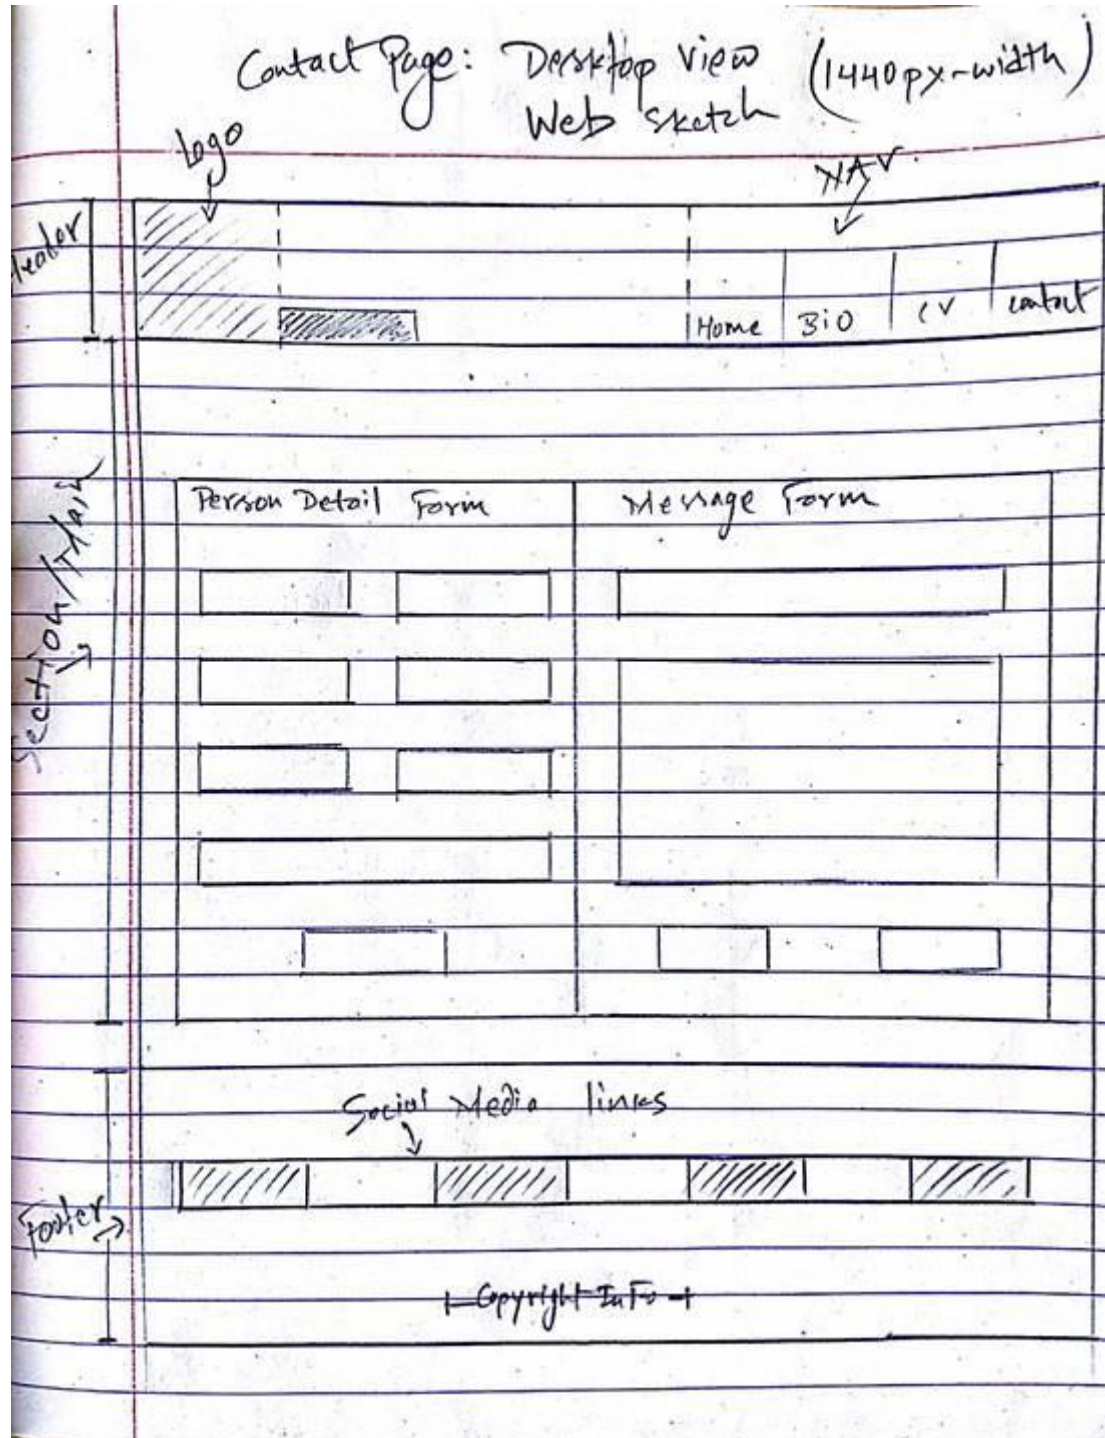 Contact Page: Desktop View (1440px-width)
Web sketch
Logo
NAV.
Header
Home
BiO
CV
contact
Section/Main
Person Detail Form
Message Form
Social Media links
Footer
Copyright InFo